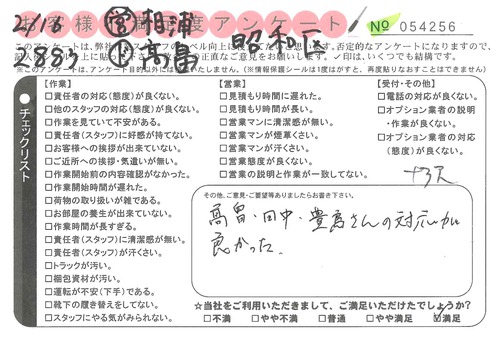 2/16 営 相浦 昭和区
2883 高畠
お客様満足度アンケート
№ 054256
※このアンケートは、アンケート目的以外には
(※情報保護シールは1度はがすと、再度貼りなおすことはできません)
チェックリスト
【作業】
□責任者の対応(態度)が良くない。
□他のスタッフの対応(態度)が良くない。
□作業を見ていて不安がある。
□責任者(スタッフ)に好感が持てない。
□お客様への挨拶が出来ていない。
□ご近所への挨拶・気遣いが無い。
□作業開始前の内容確認がなかった。
□作業開始時間が遅れた。
□荷物の取り扱いが雑である。
□お部屋の養生が出来ていない。
□作業時間が長すぎる。
□責任者(スタッフ)に清潔感が無い。
□責任者(スタッフ)が汗くさい。
□トラックが汚い。
□梱包資材が汚い。
□運転が不安(下手)である。
□靴下の履き替えをしてない。
□スタッフにやる気がみられない。
【営業】
□見積もり時間に遅れた。
□見積もり時間が長い。
□営業マンに清潔感が無い。
□営業マンが煙草くさい。
□営業マンが汗くさい。
□営業態度が良くない。
□営業の説明と作業が一致してない。
【受付・その他】
□電話の対応が良くない。
□オプション業者の説明
・作業が良くない。
□オプション業者の対応
(態度)が良くない。
その他、ご意見・ご要望等ありましたらお書き下さい。
高畠・田中・豊島さんの対応が
良かった。
☆当社をご利用いただきまして、ご満足いただけたでしょうか?
□不満 □やや不満 □普通 □やや満足 ☑満足